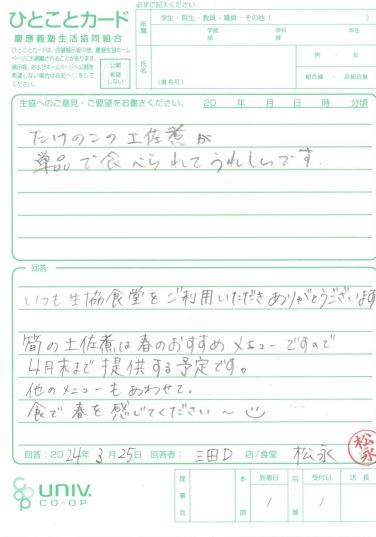 ひとことカード
慶應義塾生活協同組合
ひとことカードは、店舗掲示板の他、慶應生協ホーム
ページにも掲載されることがあります。
掲示板、およびホームページへ公開
を希望しない場合は右記へ○をして
ください。
公開
希望
しない
必ずご記入ください
所属
学生・院生・教員・職員・その他( )
学部 学科 年生
研
氏名
(匿名可)
男・女
組合員・非組合員
生協へのご意見・ご要望をお書きください。 20 年 月 日 時 分頃
たけのこの土佐煮が
単品で食べられてうれしいです。
回答
いつも生協食堂をご利用いただきありがとうございます
筍の土佐煮は春のおすすめメニューですので
4月末まで提供する予定です。
他のメニューもあわせて、
食で春を感じてください〜
回答:2024年3月25日 回答者: 三田D 店/食堂 松永
松永
UNIV.
CO-OP
理事会
本部
到着日
/
店・部
受付日
/
店長